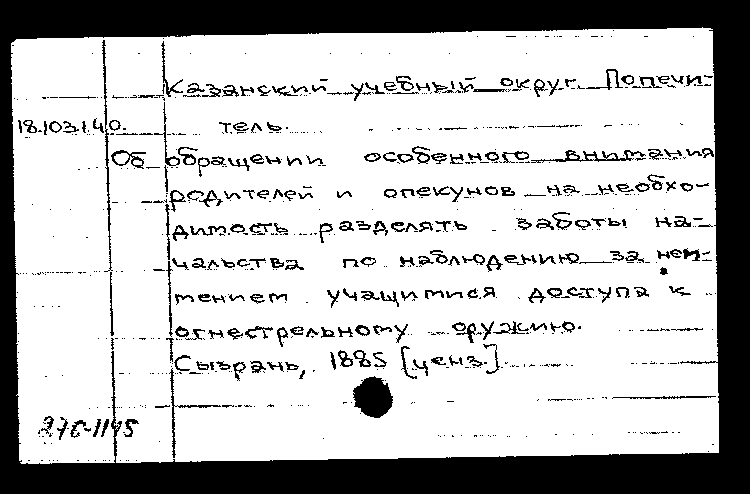 Казанский учебный округ. Попечи-
18.103.1.40. тель.
Об обращении особенного внимания
родителей и опекунов на необхо-
димость разделять заботы на-
чальства по наблюдению за неи-
мением учащимися доступа к
огнестрельному оружию.
Сызрань, 1885 [ценз.].